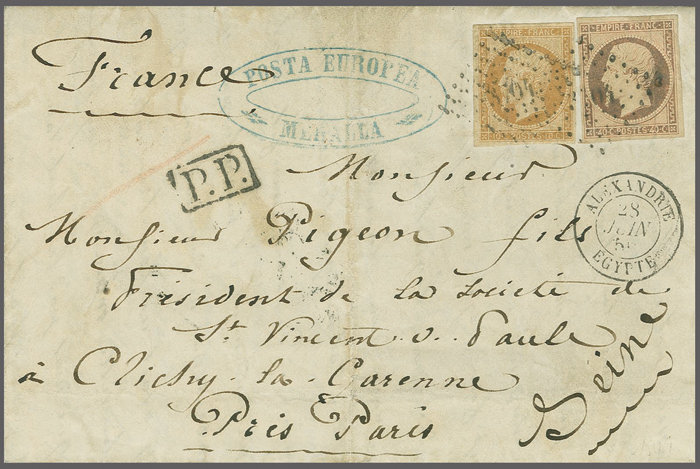 France
POSTA EUROPEA
MEHALLA
EMPIRE FRANC
10 C. POSTES 10 C.
EMPIRE FRANC.
40 C. POSTES 40 C.
P.P.
ALEXANDRIE
28
JUIN
EGYPTE
Monsieur
Monsieur Pigeon fils
Président de la Société de
St Vincent de Paule
à Clichy-la-Garenne
Près Paris
Seine